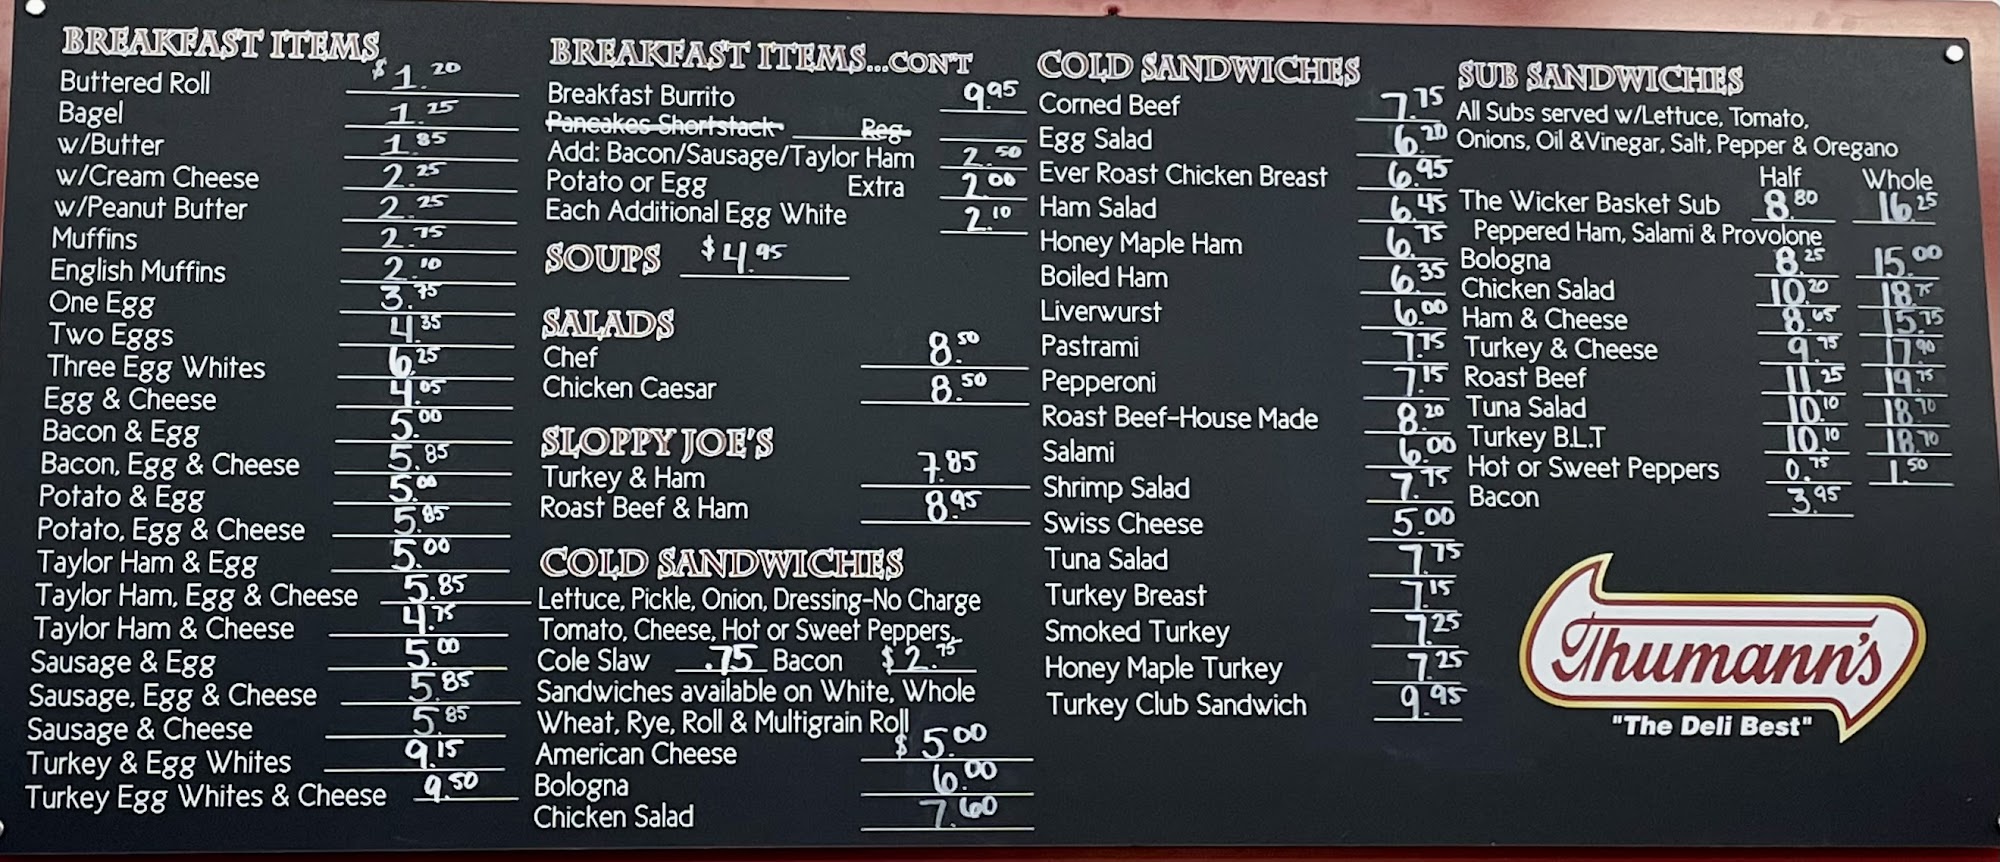 BREAKFAST ITEMS
Buttered Roll $1.20
Bagel 1.25
w/Butter 1.85
w/Cream Cheese 2.25
w/Peanut Butter 2.25
Muffins 2.75
English Muffins 2.10
One Egg 3.75
Two Eggs 4.35
Three Egg Whites 6.25
Egg & Cheese 4.05
Bacon & Egg 5.00
Bacon, Egg & Cheese 5.85
Potato & Egg 5.00
Potato, Egg & Cheese 5.85
Taylor Ham & Egg 5.00
Taylor Ham, Egg & Cheese 5.85
Taylor Ham & Cheese 4.75
Sausage & Egg 5.00
Sausage, Egg & Cheese 5.85
Sausage & Cheese 5.85
Turkey & Egg Whites 9.15
Turkey Egg Whites & Cheese 9.50
BREAKFAST ITEMS...CON'T
Breakfast Burrito 9.95
Pancakes Shortstack Reg
Add: Bacon/Sausage/Taylor Ham 2.50
Potato or Egg Extra 2.00
Each Additional Egg White 2.10
SOUPS $4.95
SALADS
Chef 8.50
Chicken Caesar 8.50
SLOPPY JOE'S
Turkey & Ham 7.85
Roast Beef & Ham 8.95
COLD SANDWICHES
Lettuce, Pickle, Onion, Dressing-No Charge
Tomato, Cheese, Hot or Sweet Peppers,
Cole Slaw .75 Bacon $2.75
Sandwiches available on White, Whole
Wheat, Rye, Roll & Multigrain Roll
American Cheese $5.00
Bologna 6.00
Chicken Salad 7.60
COLD SANDWICHES
Corned Beef 7.75
Egg Salad 6.20
Ever Roast Chicken Breast 6.95
Ham Salad 6.45
Honey Maple Ham 6.75
Boiled Ham 6.35
Liverwurst 6.00
Pastrami 7.75
Pepperoni 7.15
Roast Beef-House Made 8.20
Salami 6.00
Shrimp Salad 7.75
Swiss Cheese 5.00
Tuna Salad 7.75
Turkey Breast 7.15
Smoked Turkey 7.25
Honey Maple Turkey 7.25
Turkey Club Sandwich 9.95
SUB SANDWICHES
All Subs served w/Lettuce, Tomato,
Onions, Oil &Vinegar, Salt, Pepper & Oregano
Half Whole
The Wicker Basket Sub 8.80 16.25
Peppered Ham, Salami & Provolone
Bologna 8.25 15.00
Chicken Salad 10.20 18.75
Ham & Cheese 8.65 15.75
Turkey & Cheese 9.75 17.90
Roast Beef 11.25 19.75
Tuna Salad 10.10 18.70
Turkey B.L.T 10.10 18.70
Hot or Sweet Peppers 0.75 1.50
Bacon 3.95
Thumann's
"The Deli Best"